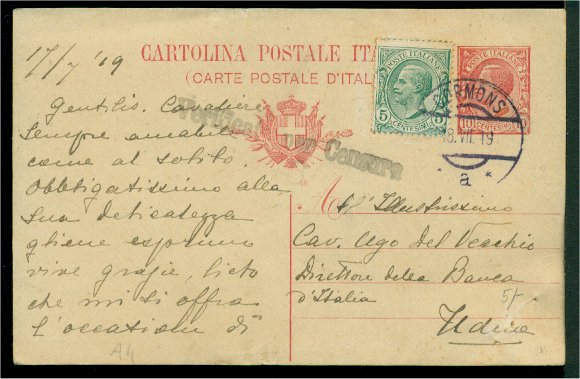 17/7 '19
CARTOLINA POSTALE ITA
(CARTE POSTALE D'ITAL
POSTE ITALIANE
5 CENTESIMI 5
POSTE ITALIANE
10 CENTESIMI
CORMONS
18.VII.19
a *
Verificat per Censura
Gentilis. Cavaliere
Sempre amabile
come al solito.
Obbligatissimo alla
Sua delicatezza
gliene esprimo
vive grazie, lieto
che mi si offra
l'occasione di
A
All' Illustrissimo
Cav. Ugo Del Vecchio
Direttore della Banca
d'Italia
5/-
Udine